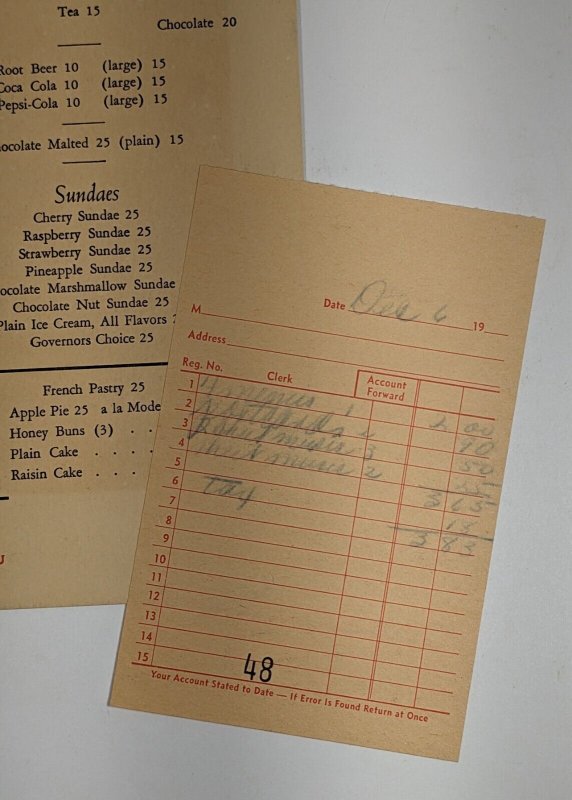 Tea 15
Chocolate 20
Root Beer 10 (large) 15
Coca Cola 10 (large) 15
Pepsi-Cola 10 (large) 15
ocolate Malted 25 (plain) 15
Sundaes
Cherry Sundae 25
Raspberry Sundae 25
Strawberry Sundae 25
Pineapple Sundae 25
ocolate Marshmallow Sundae
Chocolate Nut Sundae 25
Plain Ice Cream, All Flavors
Governors Choice 25
French Pastry 25
Apple Pie 25 a la Mode
Honey Buns (3) . .
Plain Cake . . . .
Raisin Cake . . . .
Date Dec 6 19
M
Address
Reg. No. Clerk Account Forward
1
2 2 00
3 90
4 50
5
6 3 65
7 Tax 18
8 3 83
9
10
11
12
13
14
15
48
Your Account Stated to Date — If Error Is Found Return at Once